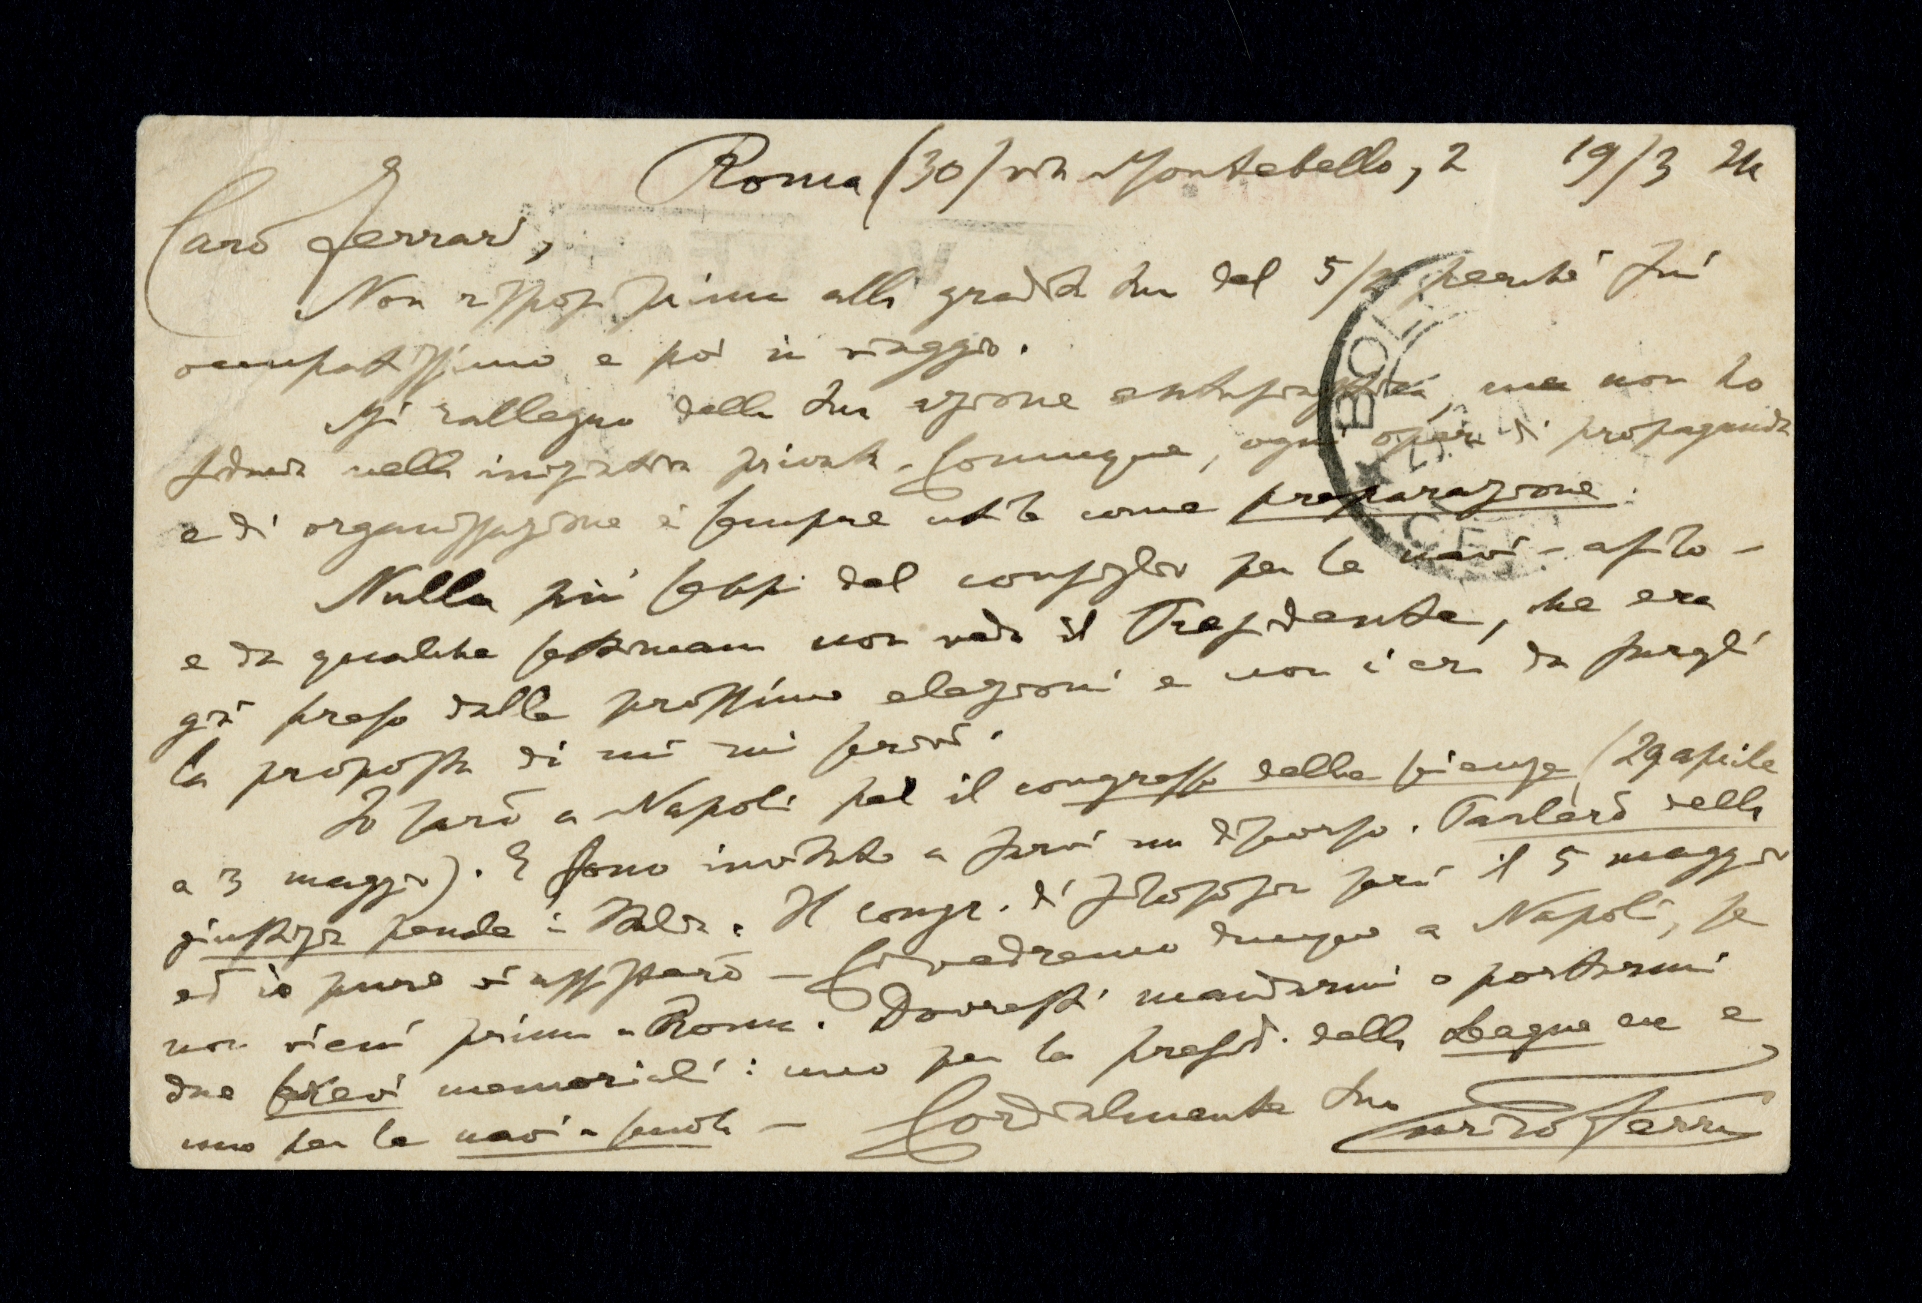 Roma (30) via Montebello, 2 19/3 24
Caro Ferrari,
Non risposi prima alla gradita tua del 5/2 perché fui
occupatissimo e poi in viaggio.
Mi rallegro della tua azione entusiastica, ma non ho
fiducia nella iniziativa privata. Comunque, ogni opera di propaganda
e di organizzazione è sempre utile come preparazione.
Nulla più seppi del consiglio per le navi-asilo -
e da qualche settimana non vedo il Presidente, che era
già preso dalle prossime elezioni e non c'era da fargli
la proposta di cui mi scrivi.
Io sarò a Napoli pel il congresso delle scienze (29 aprile
a 3 maggio). E sono invitato a farvi un discorso. Parlerò della
giustizia penale in Italia. Il congr. di filosofia sarà il 5 maggio
ed io pure vi assisterò - Ci vedremo dunque a Napoli, se
non vieni prima a Roma. Dovresti mandarmi o portarmi
due brevi memoriali: uno per la presid. della Lega e
uno per le navi-scuola - Cordialmente tuo Enrico Ferri
BOL
CE